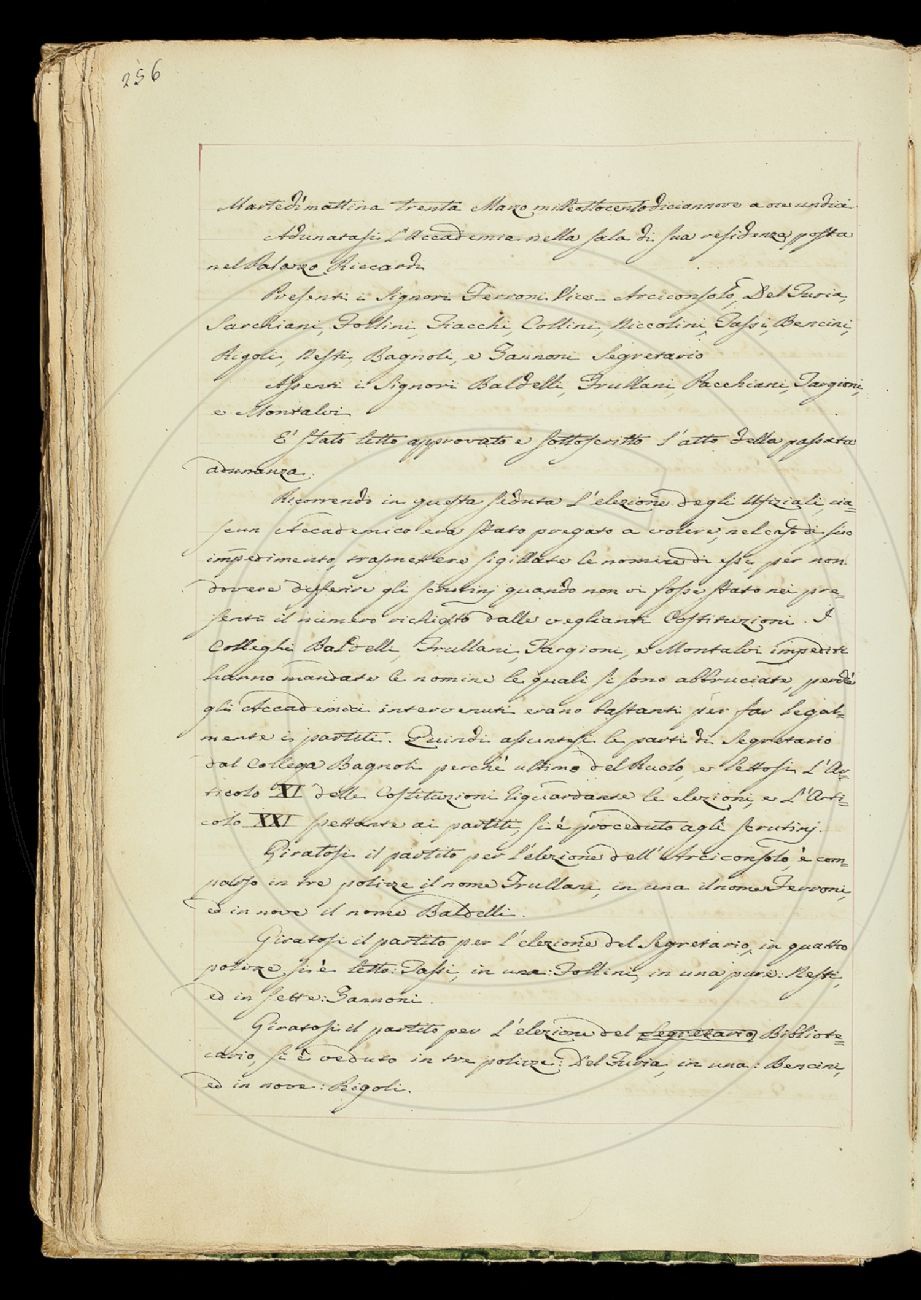 256
Martedì mattina trenta Marzo milleottocentodiciannove a ore undici
Adunatasi l'Accademia nella sala di sua residenza posta
nel Palazzo Riccardi
Presenti i Signori Ferroni Vice-Arciconsolo, Del Furia,
Sarchiani, Follini, Fiacchi, Collini, Niccolini, Tassi, Bencini,
Rigoli, Nesti, Bagnoli, e Zannoni Segretario
Assenti i Signori Baldelli, Frullani, Pacchiani, Targioni,
e Montalvi
E' stato letto approvato e sottoscritto l'atto della passata
adunanza.
Ricorrendo in questa seduta l'elezione degli Ufiziali, cia=
scun Accademico era stato pregato a volere, nel caso di suo
impedimento, trasmettere sigillate le nomine di essi, per non
dovere differire gli scrutinj quando non vi fosse stato nei pre=
senti il numero richiesto dalle veglianti Costituzioni. I
Colleghi Baldelli, Frullani, Targioni, e Montalvi impediti
hanno mandate le nomine le quali si sono abbruciate, perchè
gli Accademici intervenuti erano bastanti per far legal=
mente i partiti. Quindi assuntesi le parti di Segretario
dal Collega Bagnoli perchè ultimo del Ruolo, e lettosi l'Ar=
ticolo XI delle Costituzioni riguardante le elezioni, e l'Arti=
colo XXI spettante ai partiti, si è proceduto agli scrutinj.
Giratosi il partito per l'elezione dell'Arciconsolo, è com=
parso in tre polizze il nome Frullani, in una il nome Ferroni,
ed in nove il nome Baldelli.
Giratosi il partito per l'elezione del Segretario, in quattro
polizze si è letto: Tassi, in una: Follini, in una pure: Nesti,
ed in sette: Zannoni.
Giratosi il partito per l'elezione del Segretario Bibliote=
cario, si è veduto in tre polizze: Del Furia, in una: Bencini,
ed in nove: Rigoli.